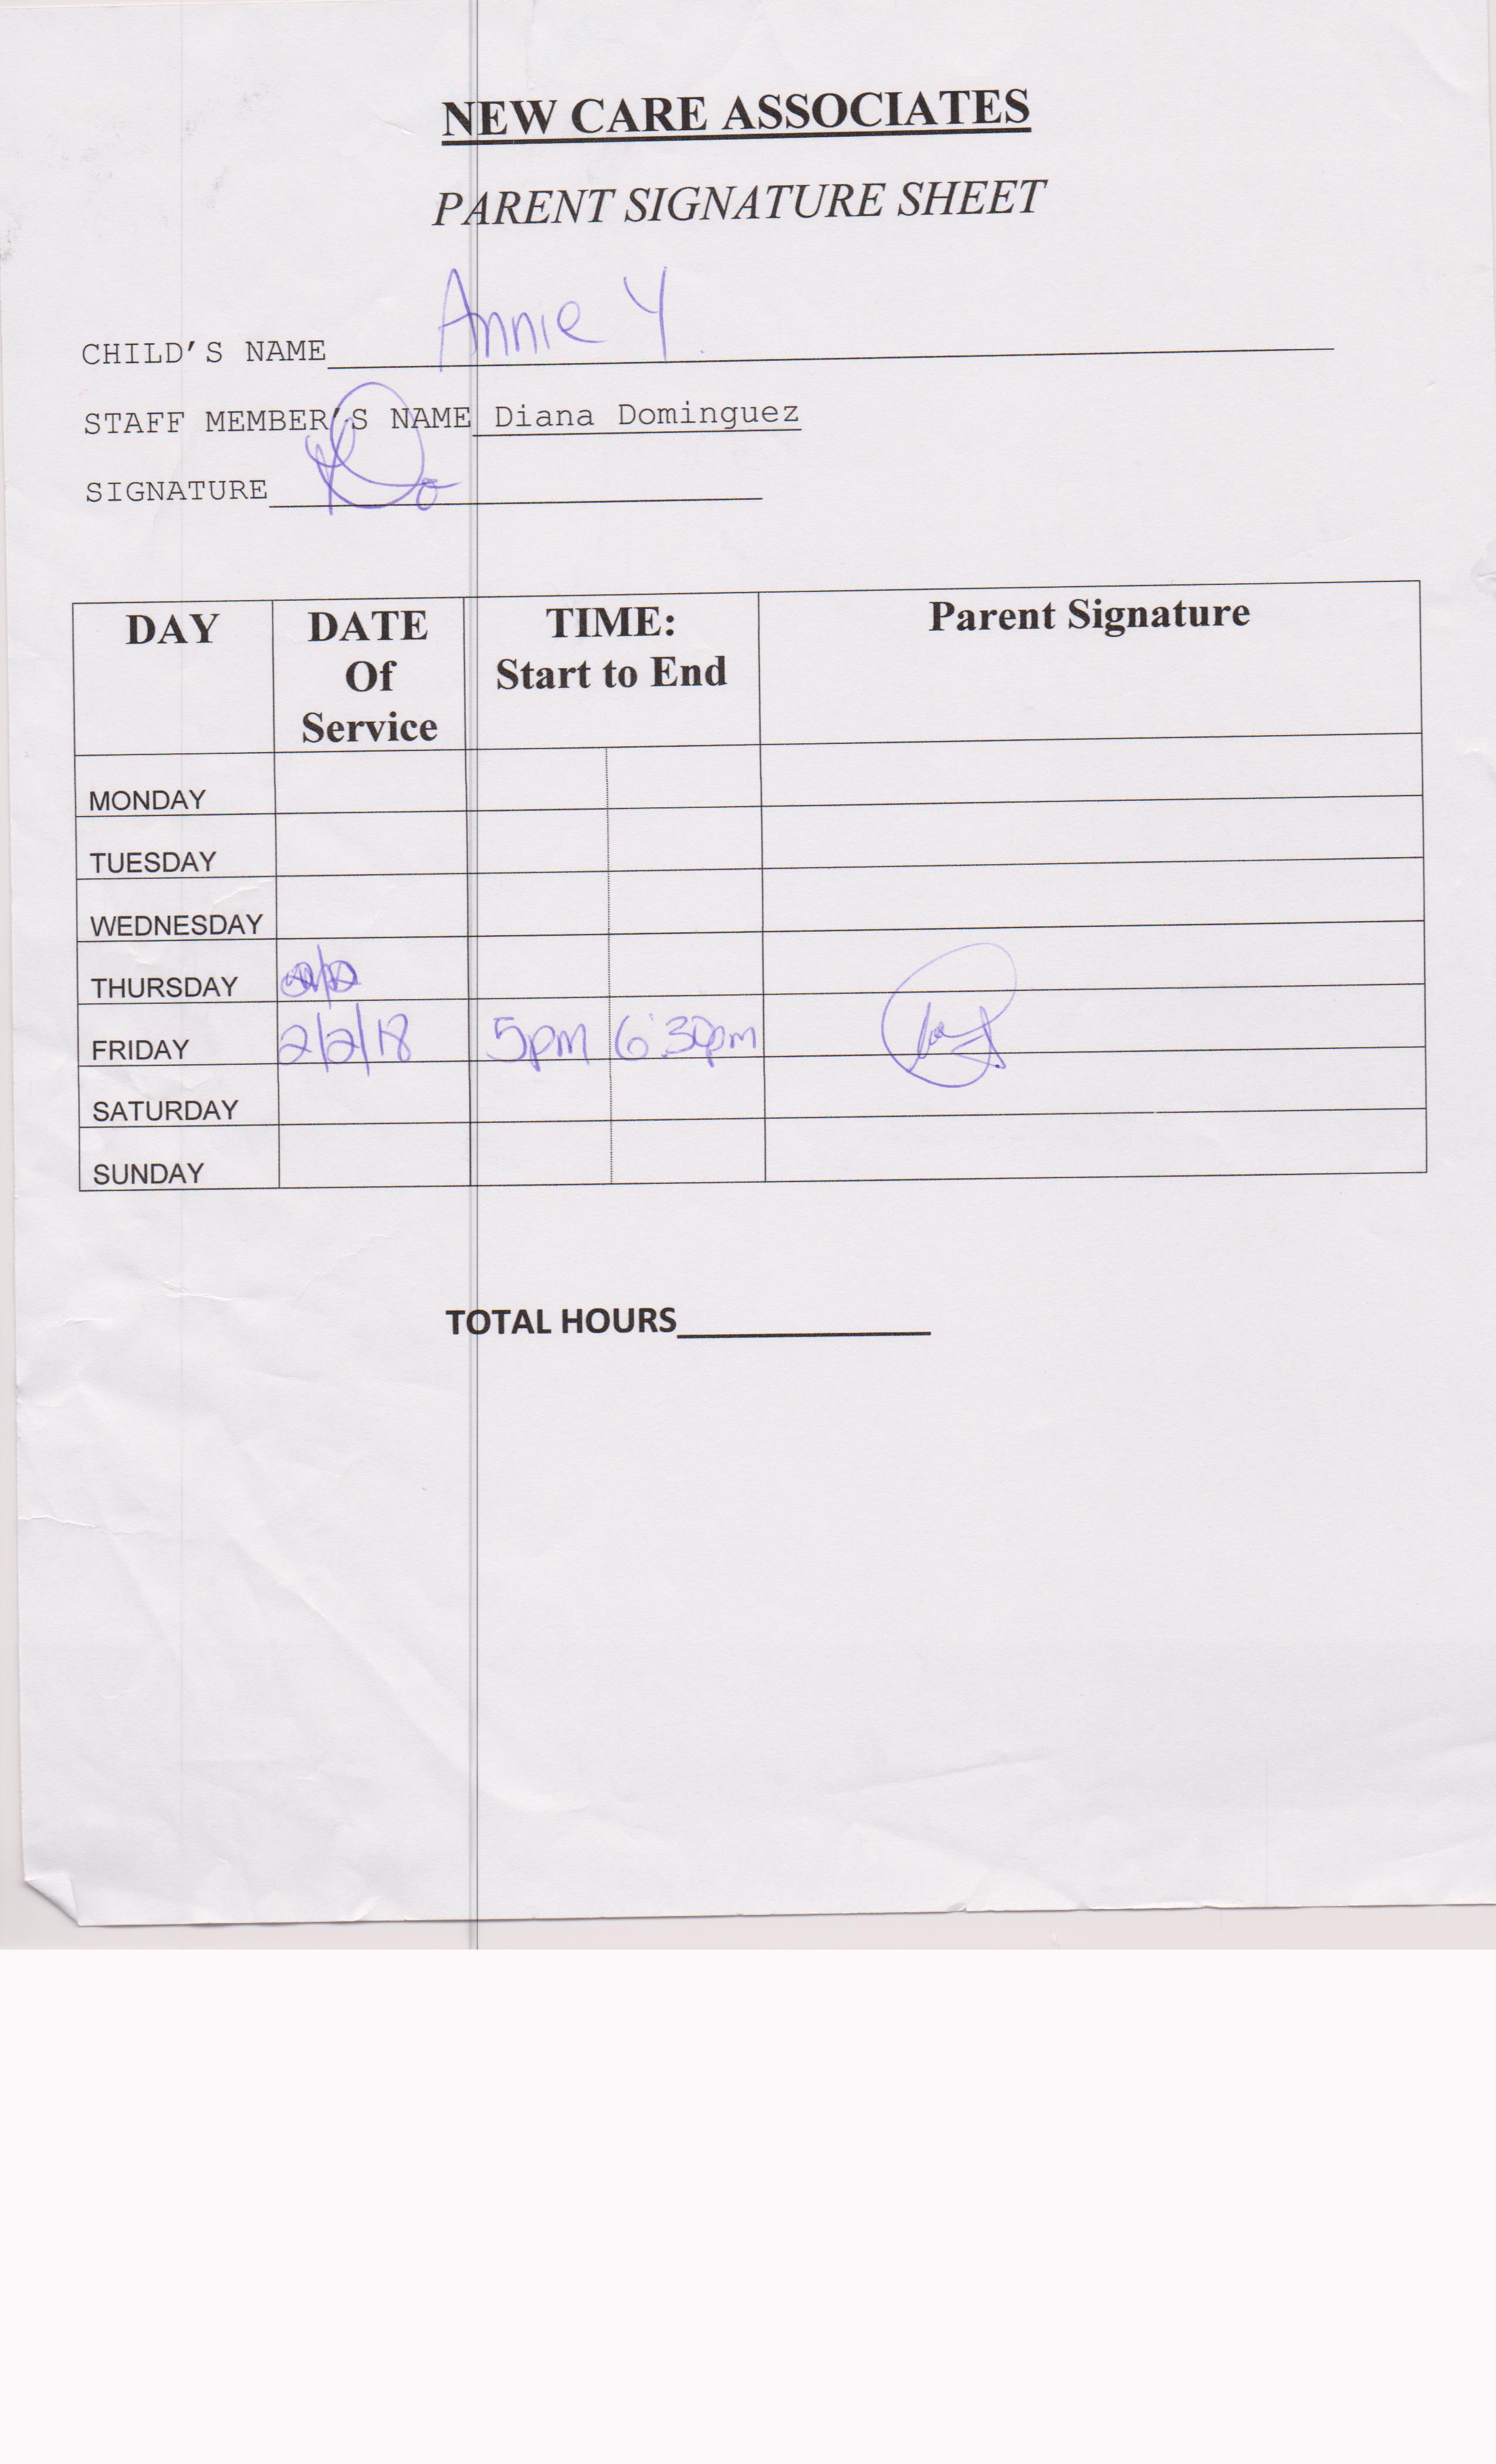 NEW CARE ASSOCIATES
PARENT SIGNATURE SHEET
CHILD'S NAME Annie Y.
STAFF MEMBER'S NAME Diana Dominguez
SIGNATURE
DAY DATE Of Service TIME: Start to End Parent Signature
MONDAY
TUESDAY
WEDNESDAY
THURSDAY
FRIDAY 2/2/18 5pm 6:30pm
SATURDAY
SUNDAY
TOTAL HOURS